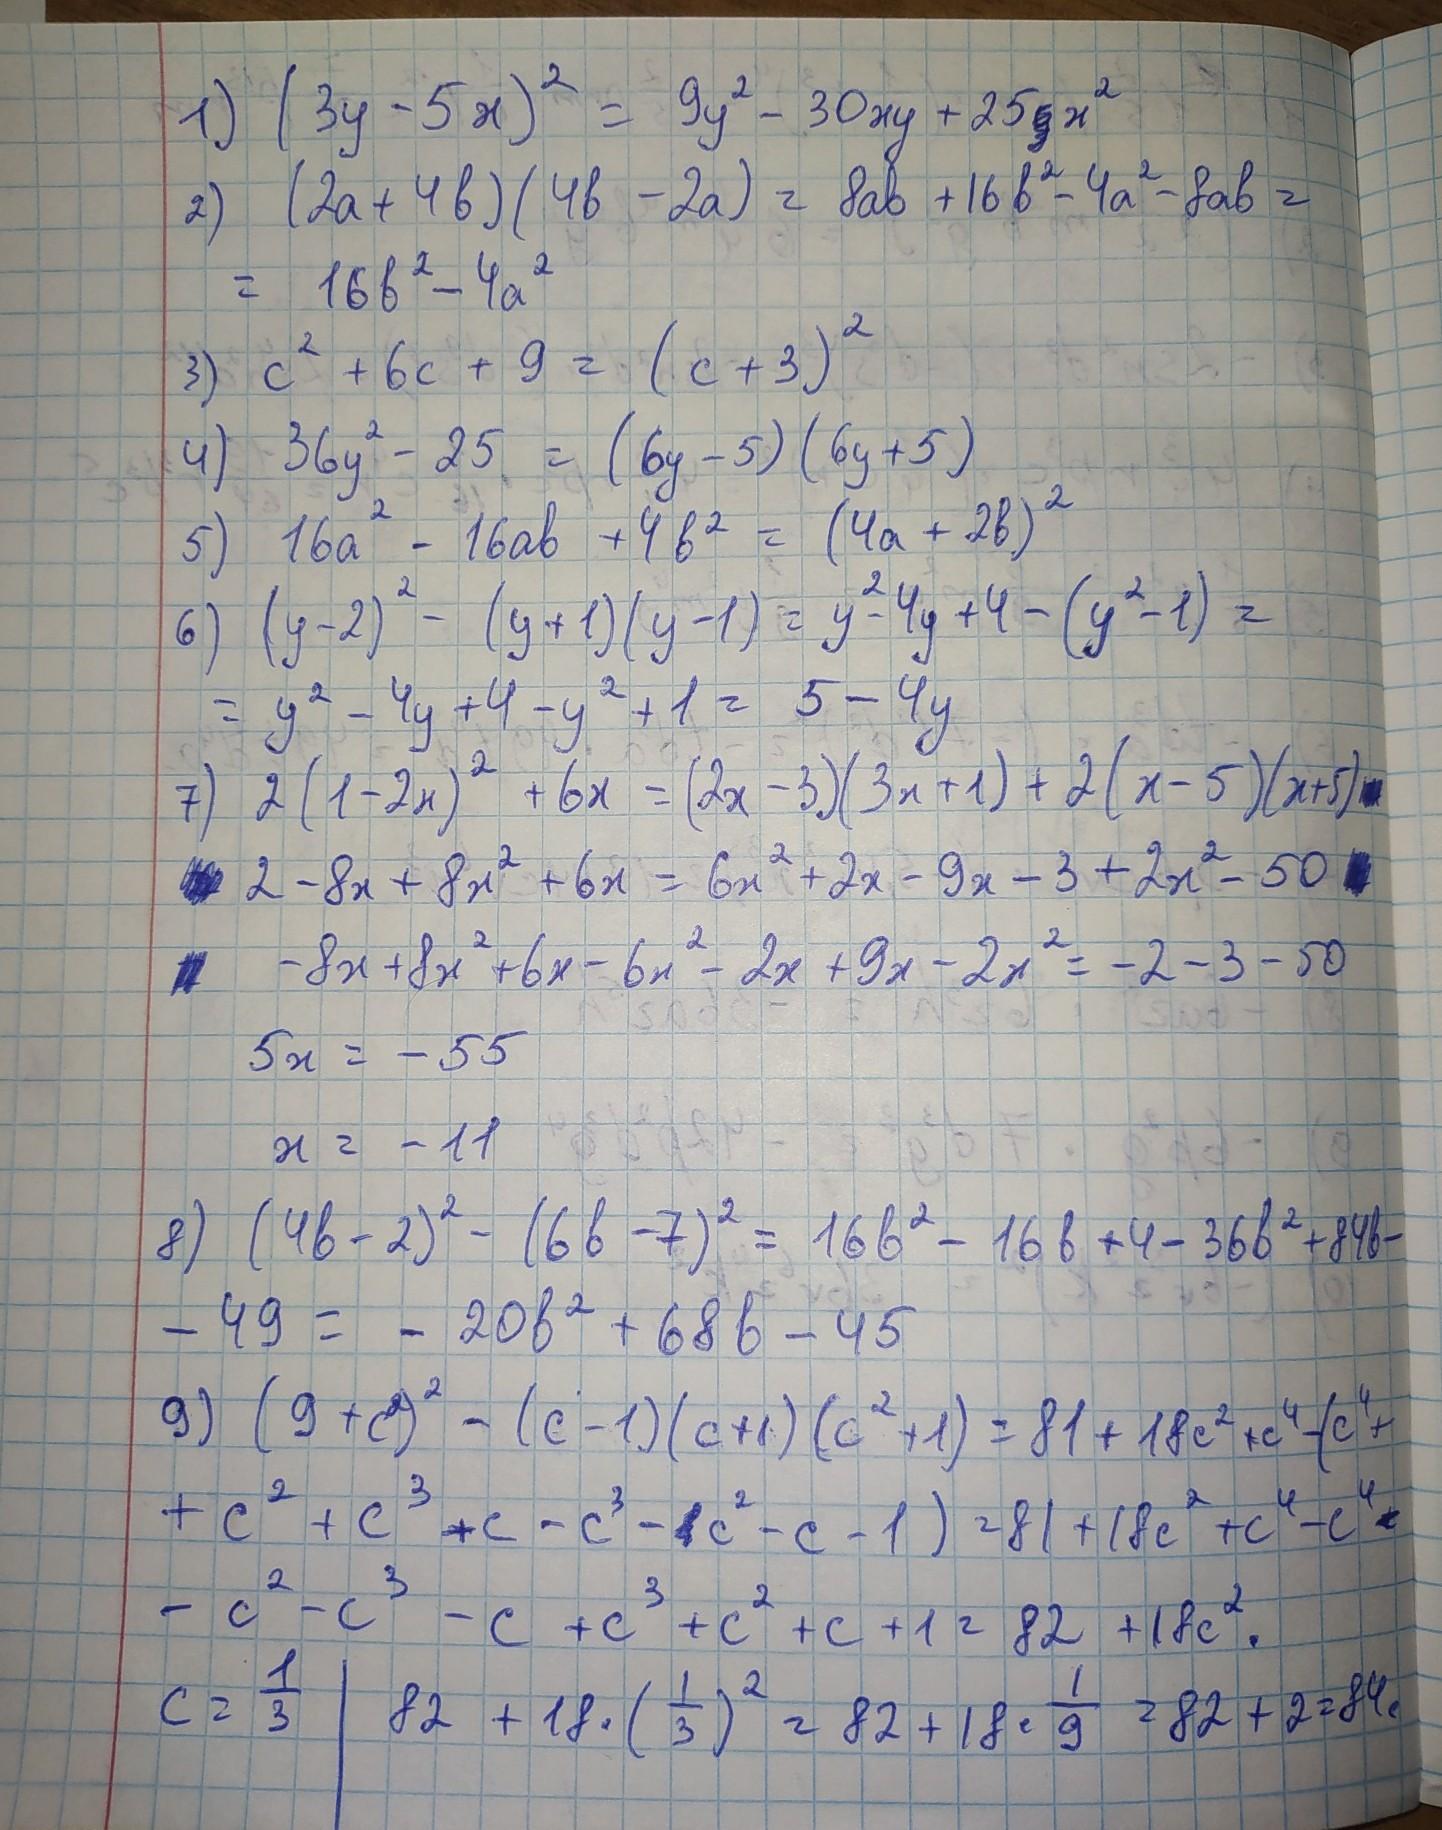 1) (3y - 5x)² = 9y² - 30xy + 25x²
2) (2a + 4b)(4b - 2a) = 8ab + 16b² - 4a² - 8ab =
= 16b² - 4a²
3) c² + 6c + 9 = (c + 3)²
4) 36y² - 25 = (6y - 5)(6y + 5)
5) 16a² - 16ab + 4b² = (4a + 2b)²
6) (y - 2)² - (y + 1)(y - 1) = y² - 4y + 4 - (y² - 1) =
= y² - 4y + 4 - y² + 1 = 5 - 4y
7) 2(1 - 2x)² + 6x = (2x - 3)(3x + 1) + 2(x - 5)(x + 5)
2 - 8x + 8x² + 6x = 6x² + 2x - 9x - 3 + 2x² - 50
-8x + 8x² + 6x - 6x² - 2x + 9x - 2x² = -2 - 3 - 50
5x = -55
x = -11
8) (4b - 2)² - (6b - 7)² = 16b² - 16b + 4 - 36b² + 84b -
- 49 = - 20b² + 68b - 45
9) (9 + c²)² - (c - 1)(c + 1)(c² + 1) = 81 + 18c² + c⁴ - (c⁴ +
+ c² + c³ + c - c³ - c² - c - 1) = 81 + 18c² + c⁴ - c⁴ -
- c² - c³ - c + c³ + c² + c + 1 = 82 + 18c².
c = 1/3 | 82 + 18 · (1/3)² = 82 + 18 · 1/9 = 82 + 2 = 84.